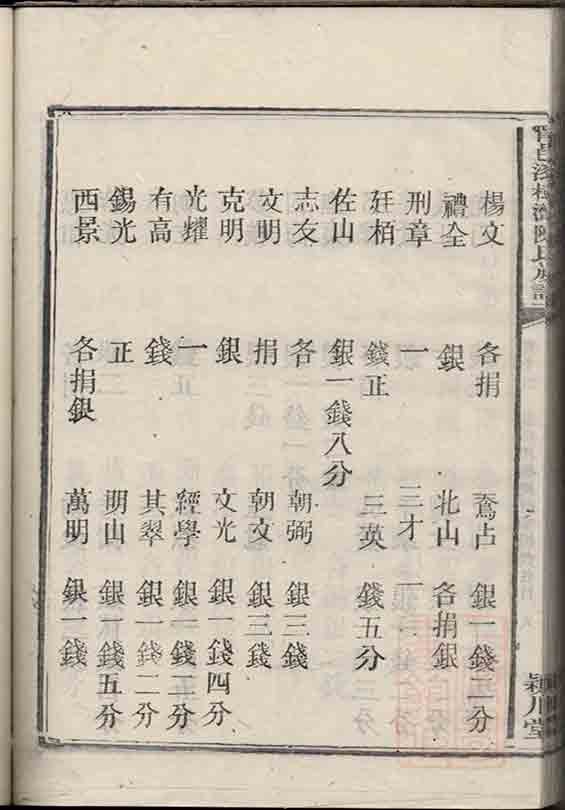 楊文 各捐 鶱占 銀一錢二分
禮全 銀 北山 各捐銀
刑章 一 三才 一
廷栢 錢正 三英 錢五分
佐山 銀一錢八分
志友 各 朝弼 銀三錢
文明 捐 朝文 銀三錢
克明 銀 文光 銀一錢四分
光耀 一 經學 銀一錢二分
有高 錢 其翠 銀一錢二分
錫光 正 明山 銀一錢五分
西景 各捐銀 萬明 銀一錢
陳氏族譜
潁川堂